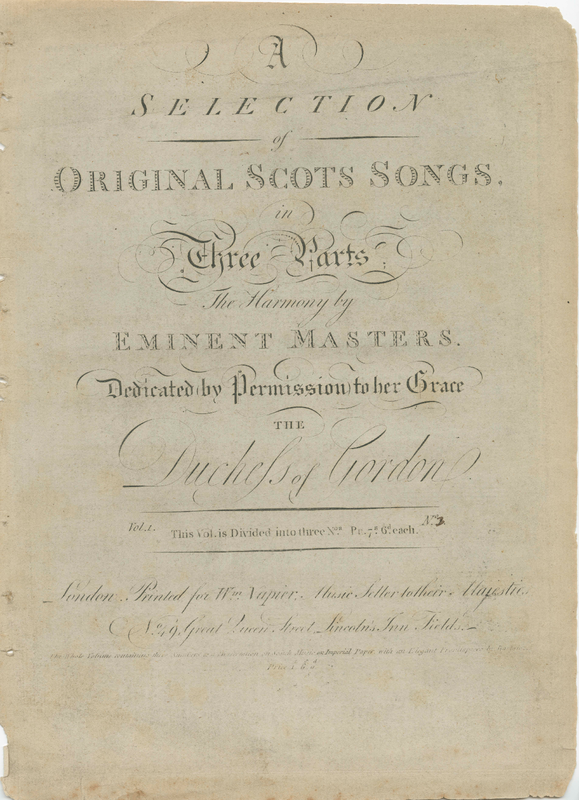 A
SELECTION
of
ORIGINAL SCOTS SONGS,
in
Three Parts
The Harmony by
EMINENT MASTERS.
Dedicated by Permission to her Grace
THE
Duchess of Gordon
Vol. 1. This Vol. is Divided into three Nos. Pr. 7s. 6d. each.
London Printed for Wm. Napier, Music Seller to their Majesties
No. 49, Great Queen Street, Lincolns Inn Fields.
on Imperial Paper with an Elegant
Price